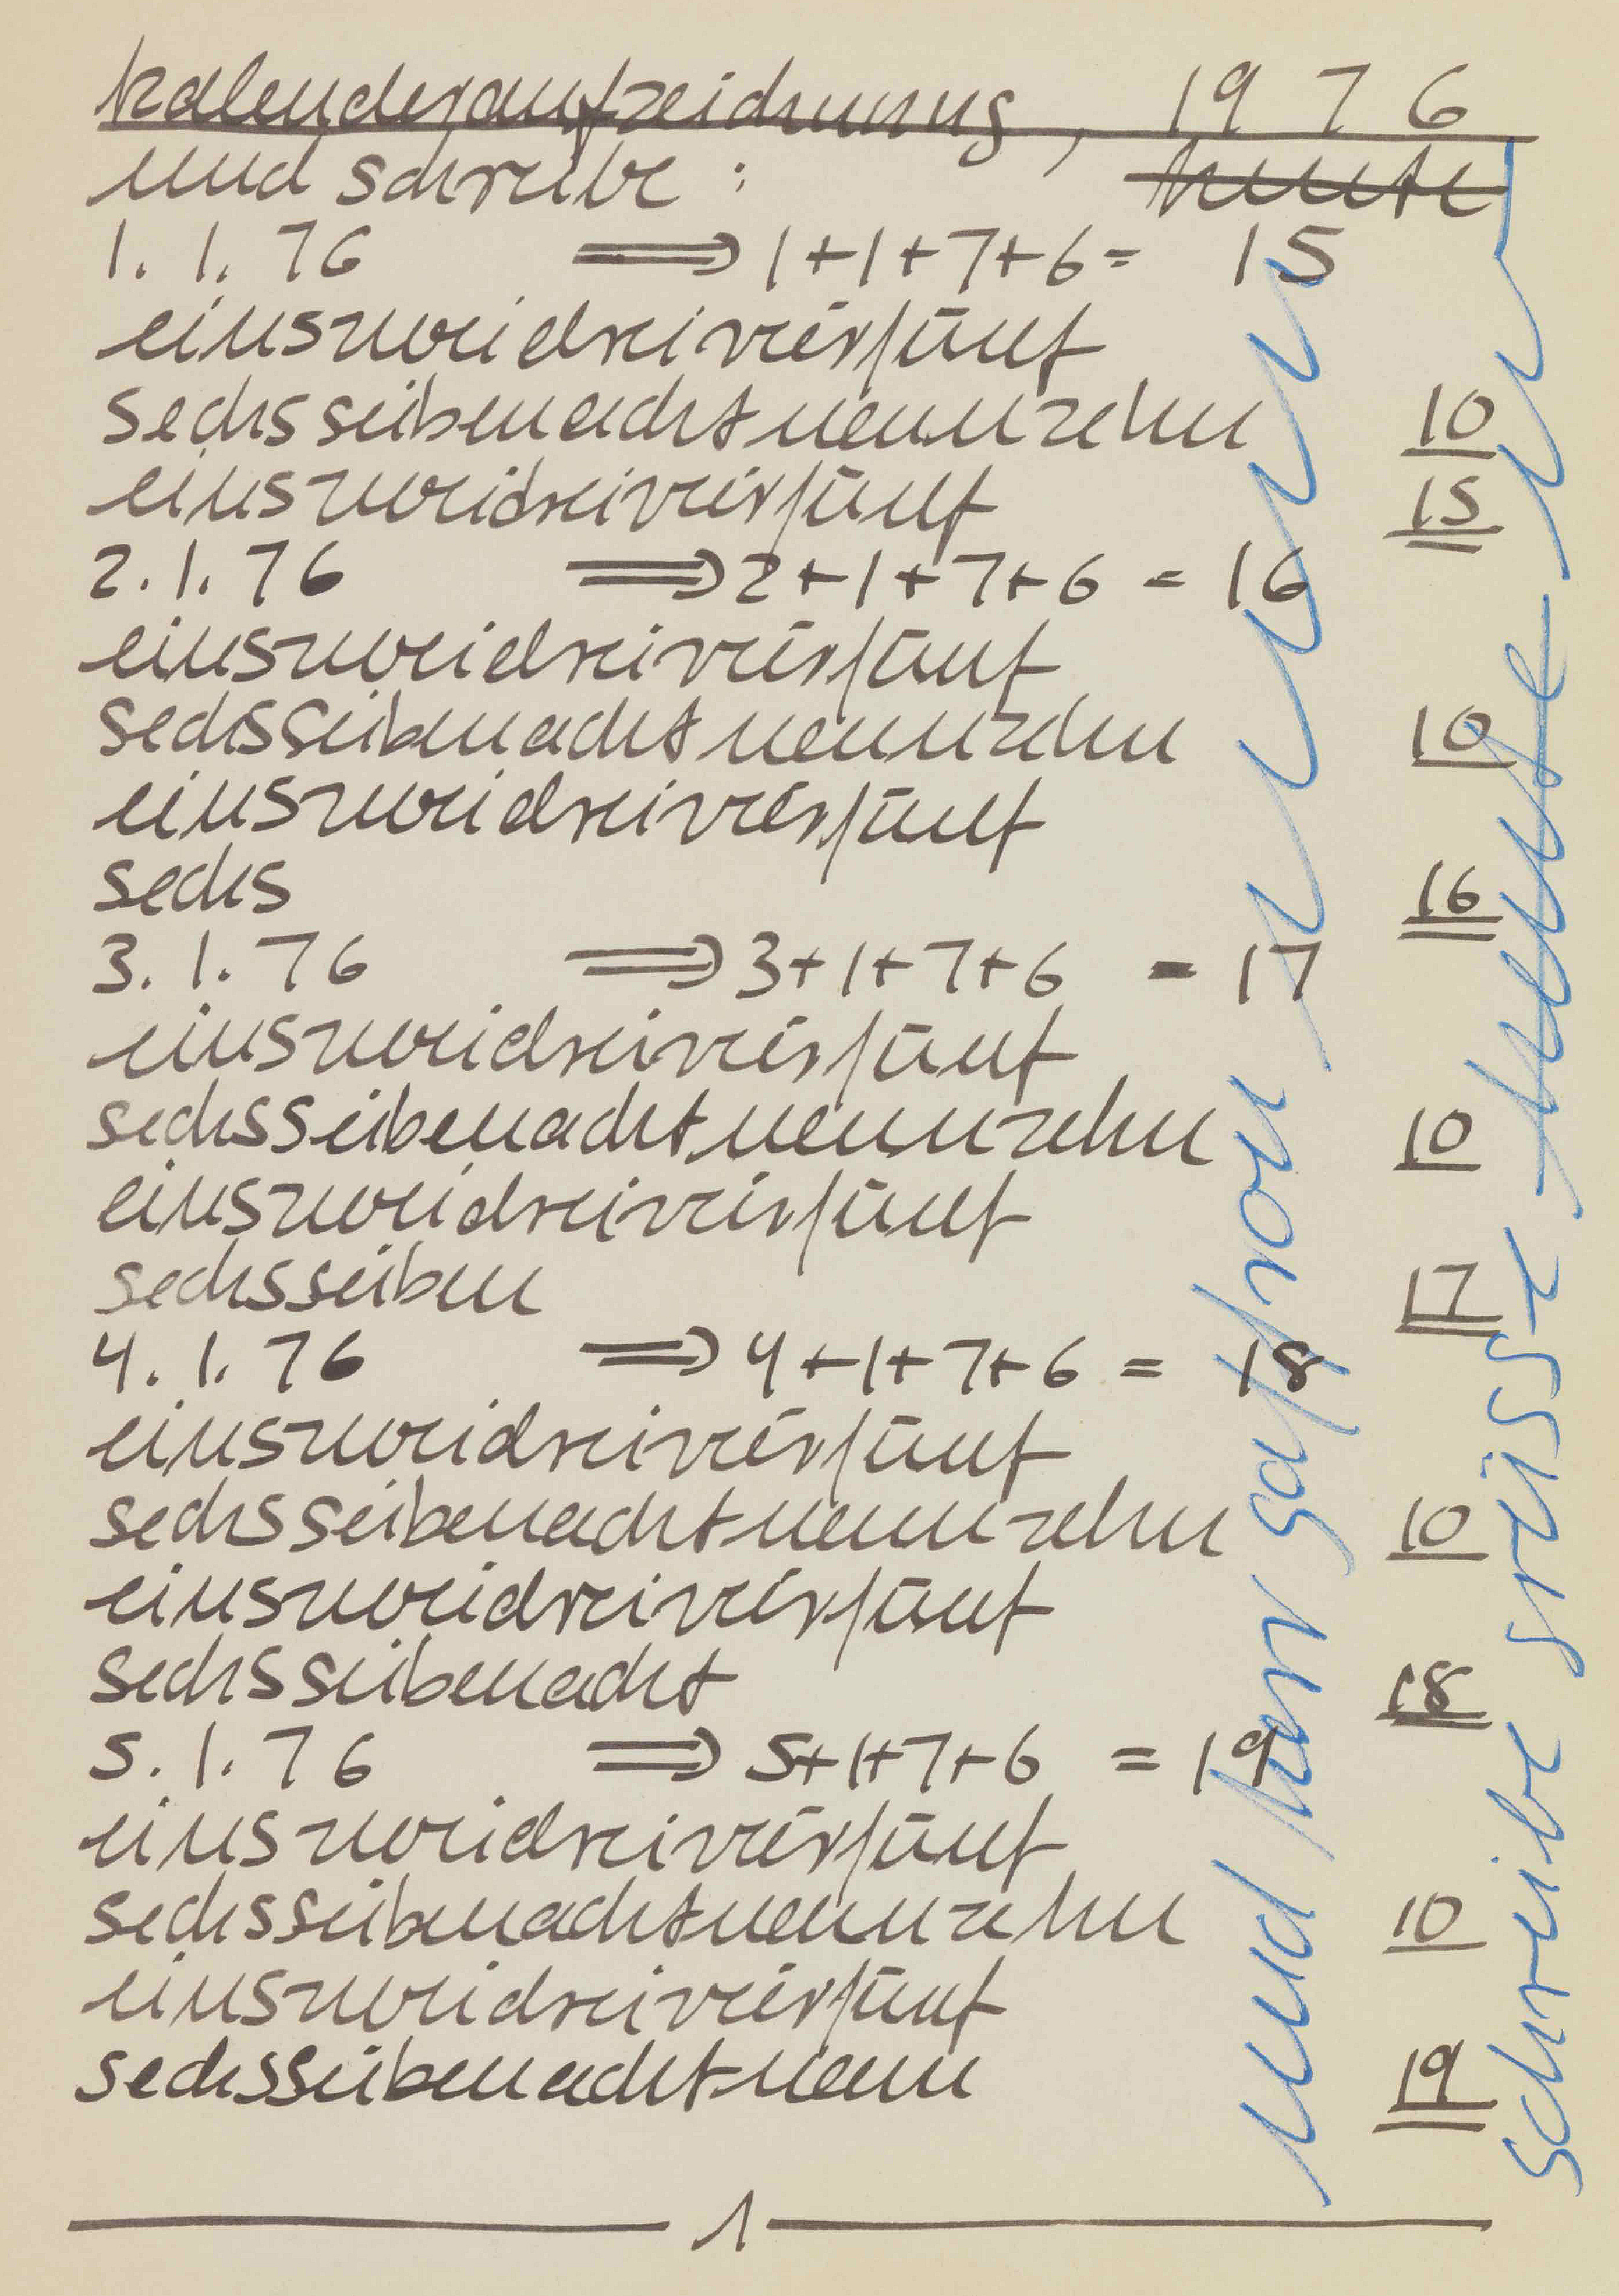 kalenderaufzeichnung, 1976
und schreibe : heute
1. 1. 76 ⇒ 1+1+7+6= 15
einszweidreivierfünf
sechssiebenachtneunzehn 10
einszweidreivierfünf 15
2. 1. 76 ⇒ 2+1+7+6 = 16
einszweidreivierfünf
sechssiebenachtneunzehn 10
einszweidreivierfünf
sechs 16
3. 1. 76 ⇒ 3+1+7+6 = 17
einszweidreivierfünf
sechssiebenachtneunzehn 10
einszweidreivierfünf
sechssieben 17
4. 1. 76 ⇒ 4+1+7+6 = 18
einszweidreivierfünf
sechssiebenachtneunzehn 10
einszweidreivierfünf
sechssiebenacht 18
5. 1. 76 ⇒ 5+1+7+6 = 19
einszweidreivierfünf
sechssiebenachtneunzehn 10
einszweidreivierfünf
sechssiebenachtneun 19
1
und
schreibe grüsse heute